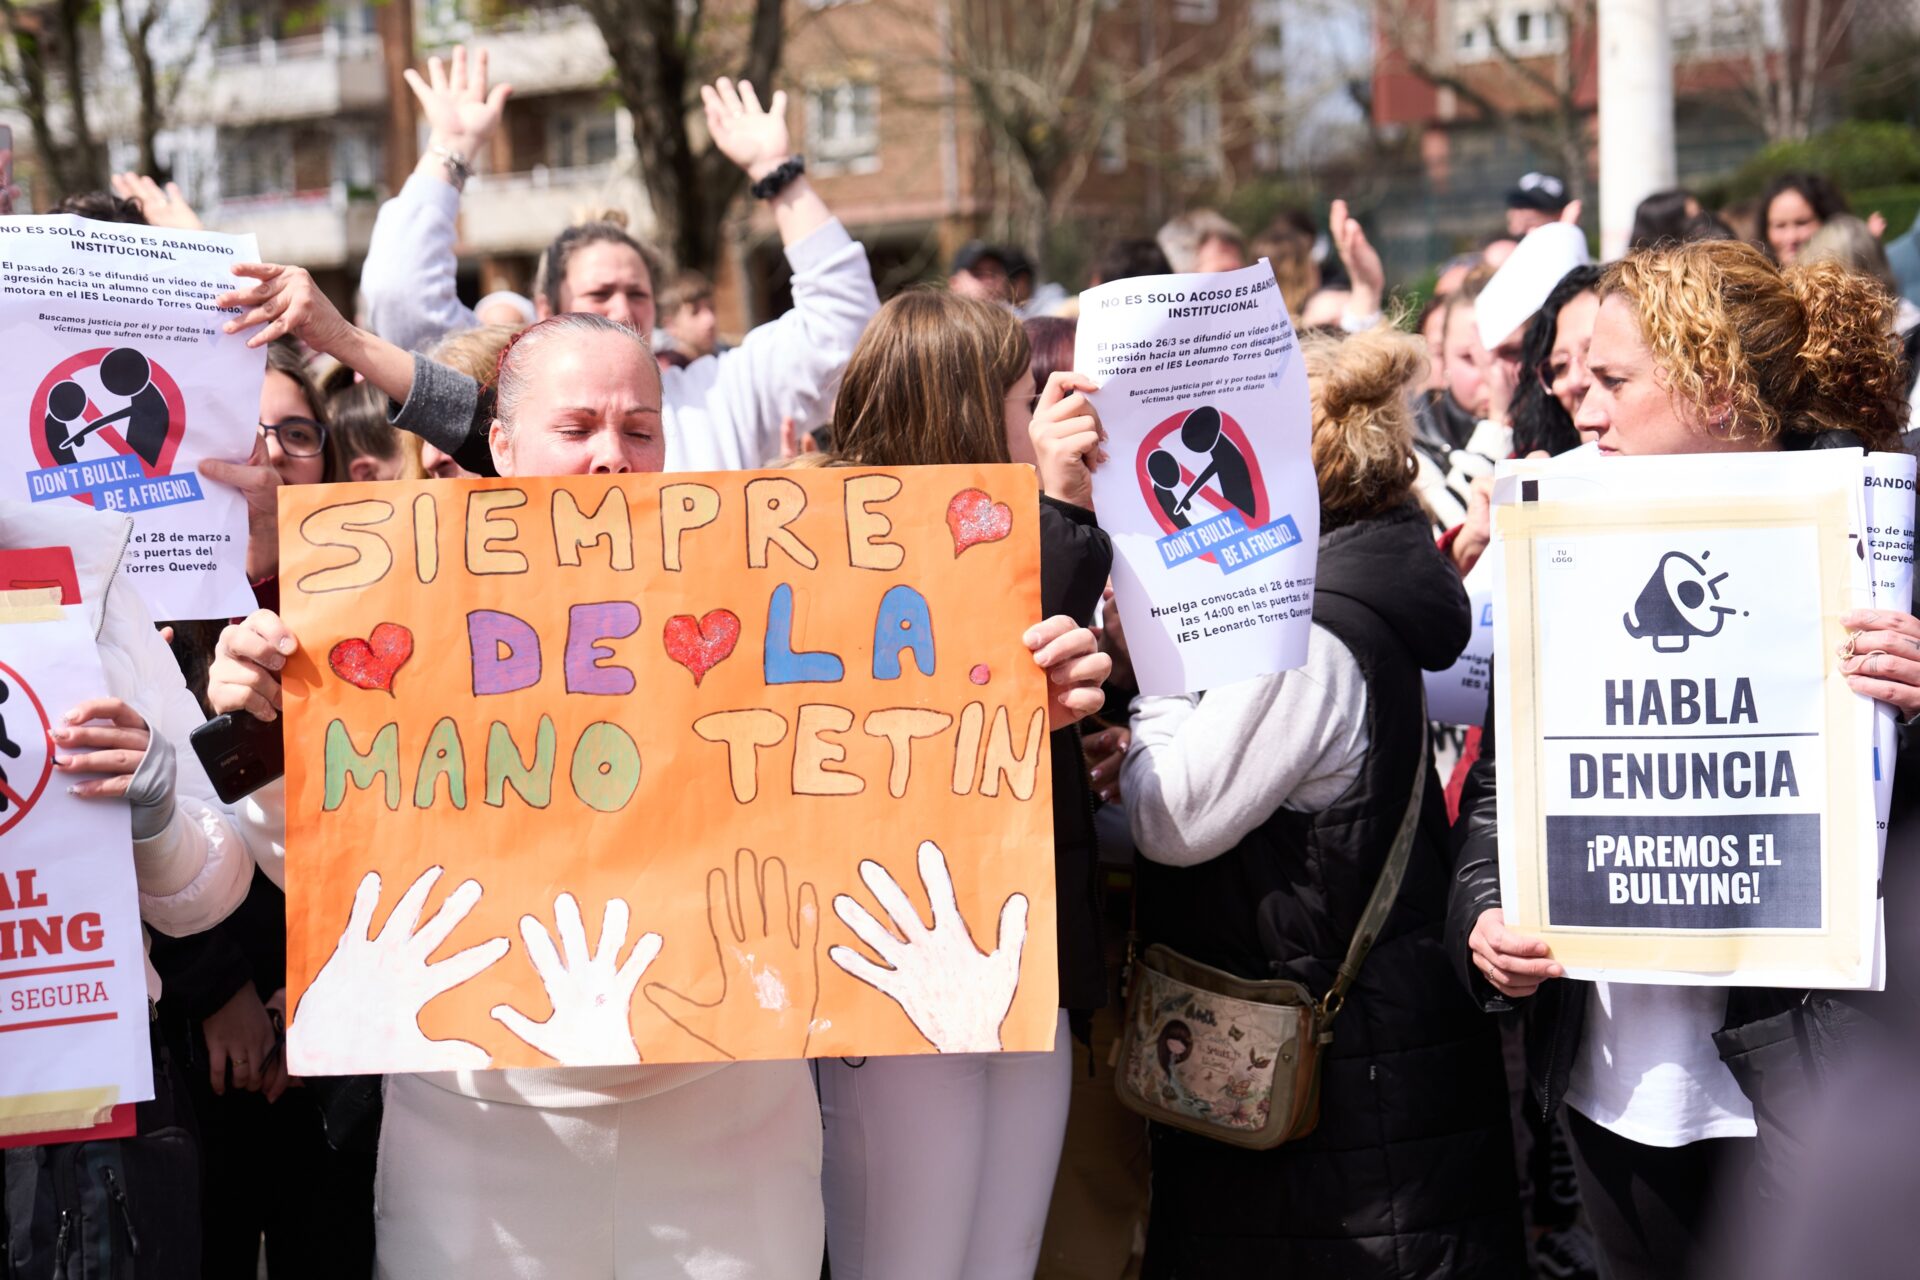 NO ES SOLO ACOSO ES ABANDONO
INSTITUCIONAL
El pasado 26/3 se difundió un vídeo de una
agresión hacia un alumno con discapa
motora en el IES Leonardo Torres Quevedo.
Buscamos justicia por él y por todas las
víctimas que sufren esto a diario
DON'T BULLY...
BE A FRIEND.
el 28 de marzo a
puertas del
Torres Quevedo
AL
ING
SEGURA
SIEMPRE
DE LA.
MANO TETÍN
NO ES SOLO ACOSO ES ABANDO
INSTITUCIONAL
El pasado 26/3 se difundió un vídeo de una
agresión hacia un alumno con discapacid
motora en el IES Leonardo Torres Quevedo.
Buscamos justicia por él y por todas las
víctimas que sufren esto a diario
DON'T BULLY...
BE A FRIEND.
Huelga convocada el 28 de marzo
a las 14:00 en las puertas del
IES Leonardo Torres Quevedo
TU
LOGO
HABLA
DENUNCIA
¡PAREMOS EL
BULLYING!
BANDON
eo de un
scapacid
Queved
s las